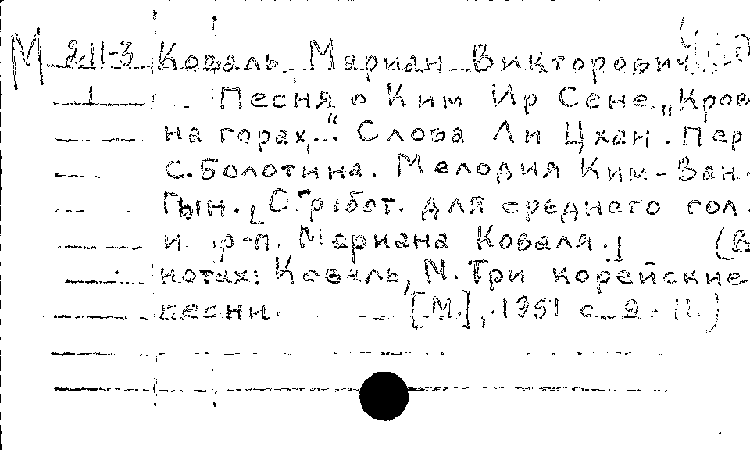 М 2.11-3 Коваль Мариан Викторович
1 Песня о Ким Ир Сене. „Кров
на горах..." Слова Ли Цхан. Пер
С. Болотина. Мелодия Ким-Ван-
Гын. [Обработ. для среднего гол.
и р-п. Мариана Коваля.] (В
нотах: Коваль, М. Три корейские
песни. [М.], 1951 с. 9-11.)